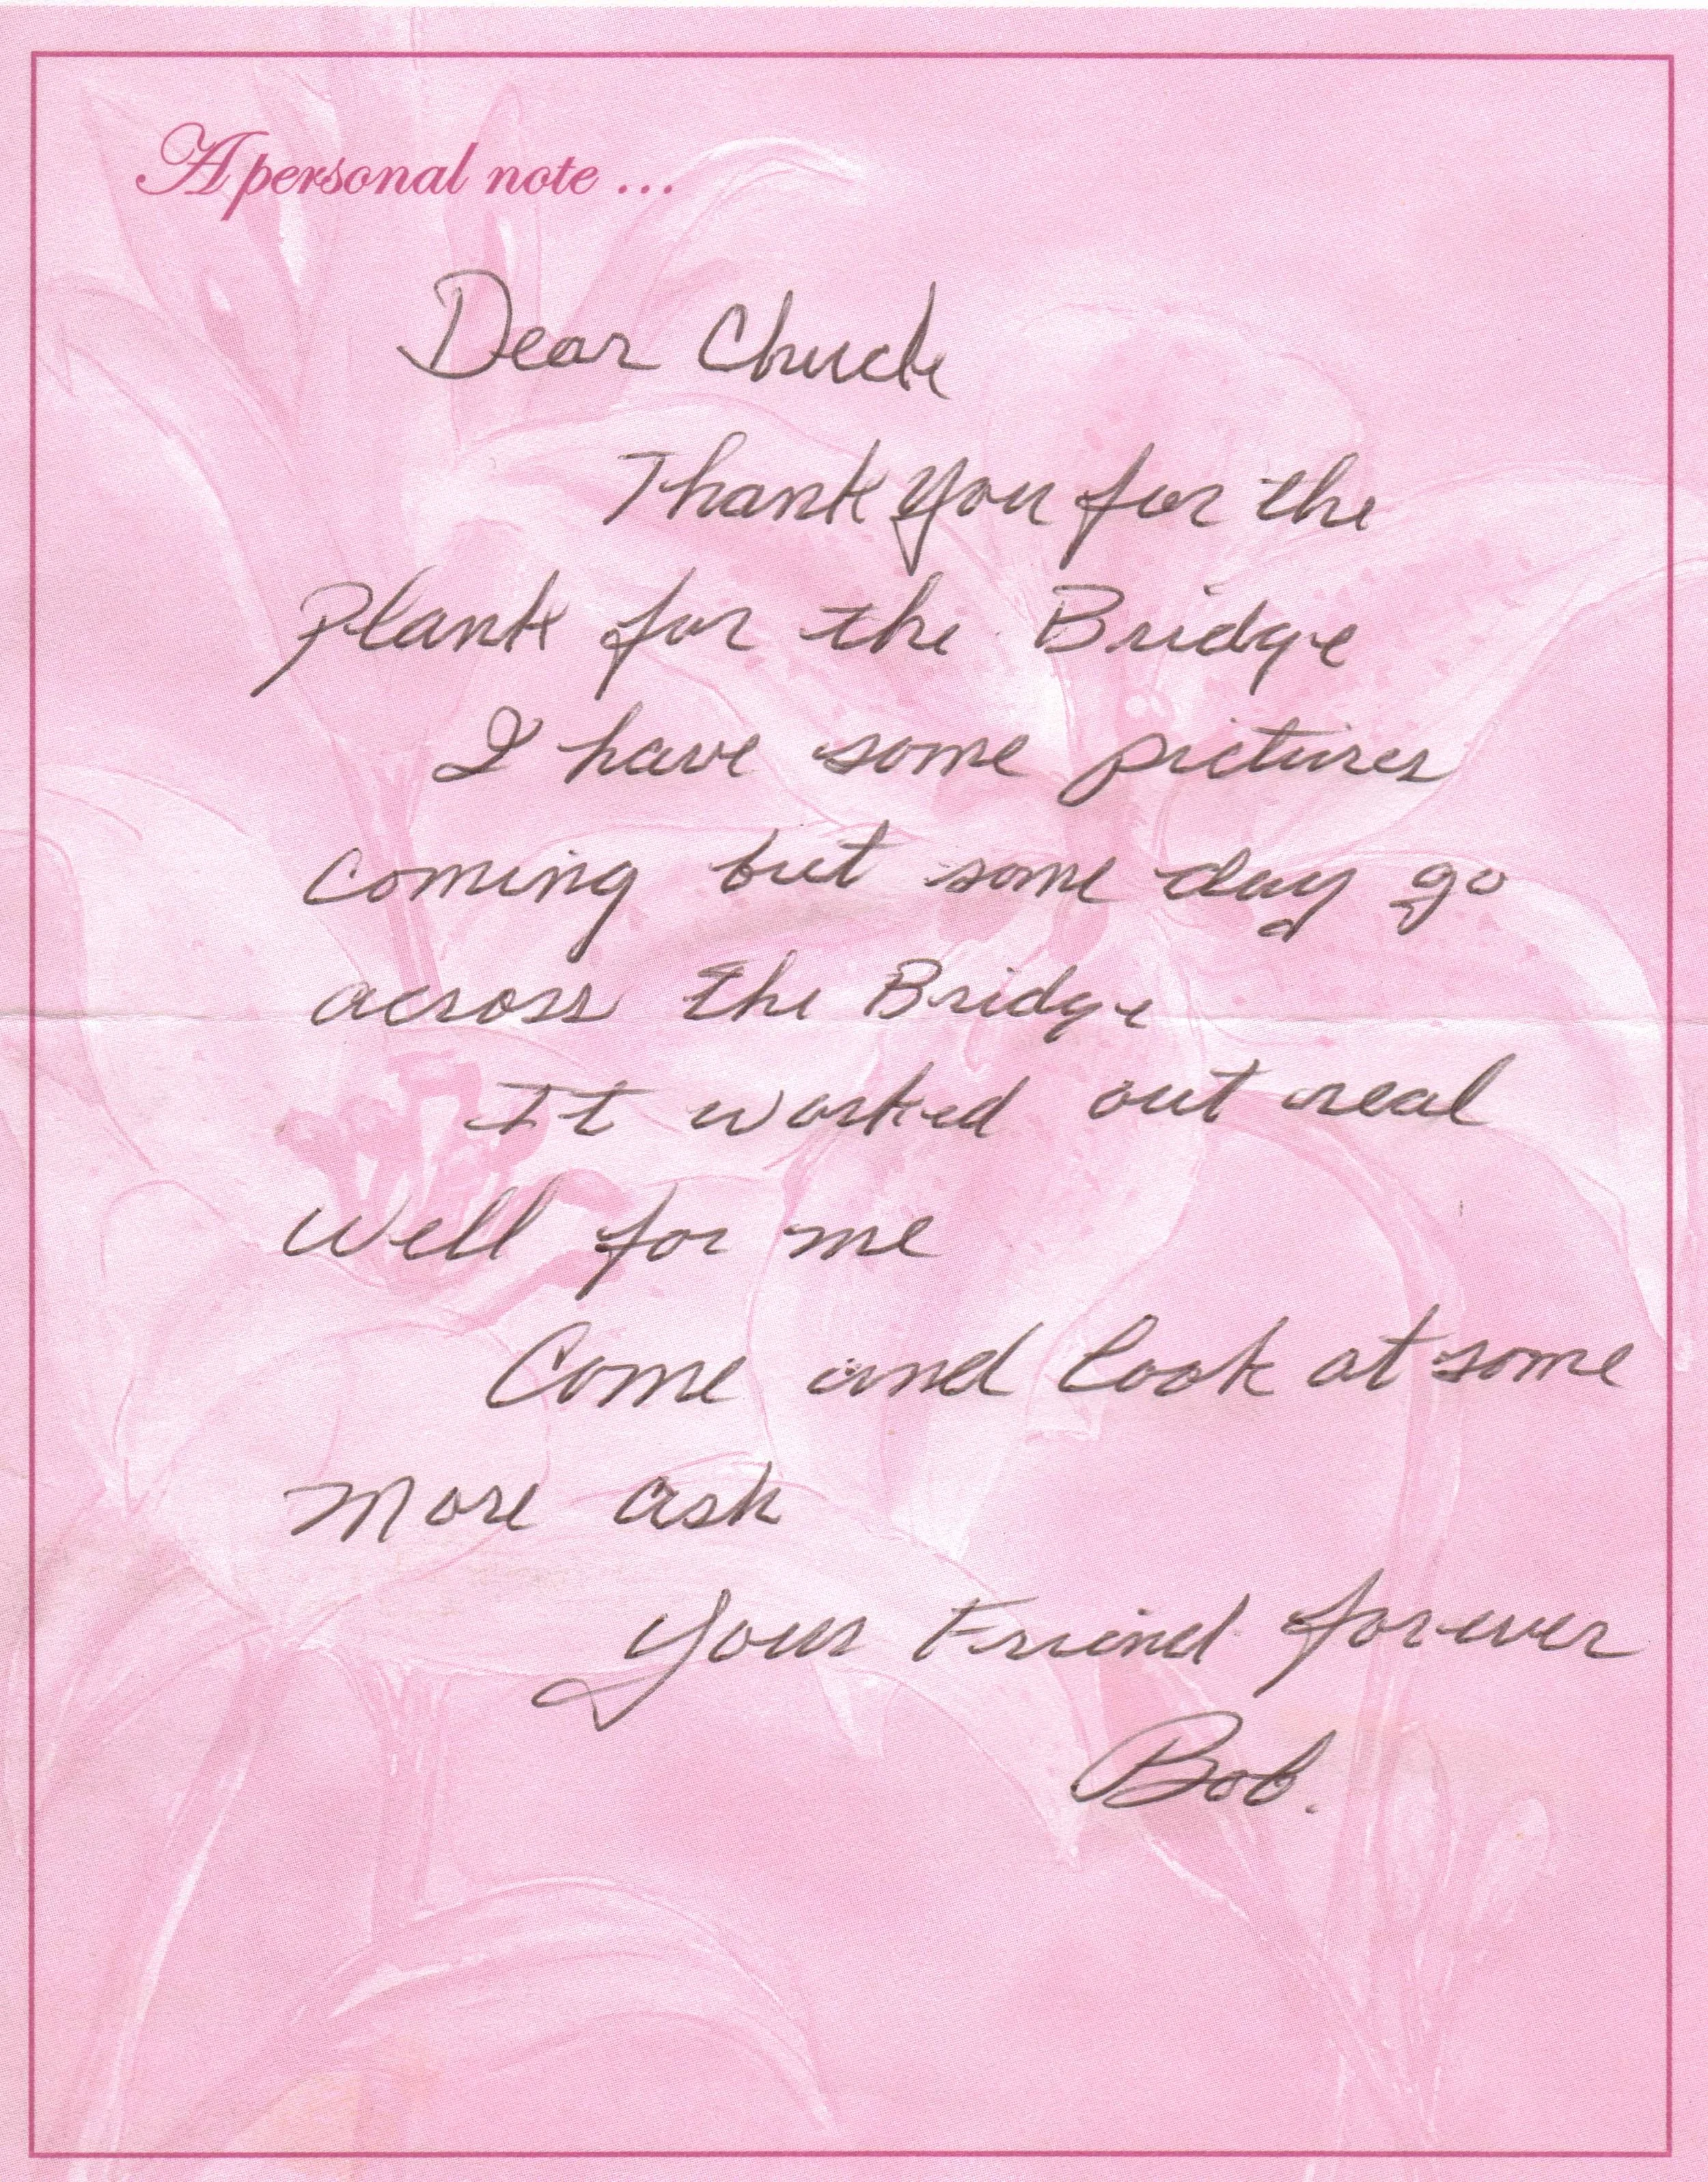 A personal note ...
Dear Chuck
Thank you for the
Plank for the Bridge
I have some pictures
coming but some day go
across the Bridge
It worked out real
well for me
Come and look at some
more ask
Your Friend forever
Bob.